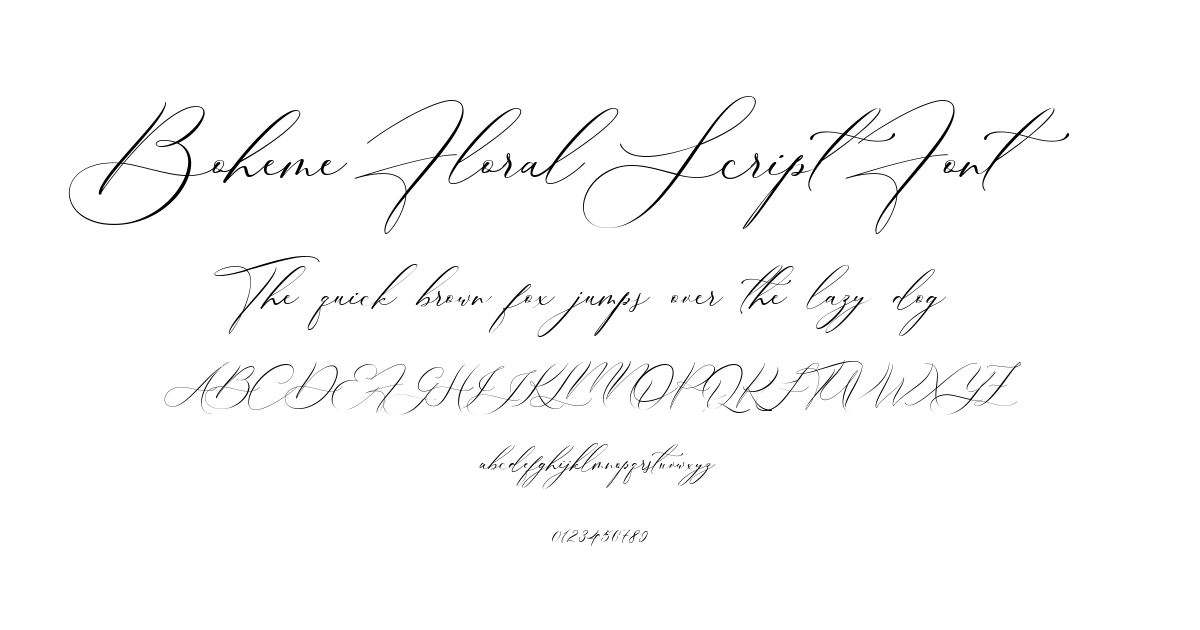 Boheme Floral Script Font
The quick brown fox jumps over the lazy dog
ABCDEFGHIJKLMNOPQRSTUVWXYZ
abcdefghijklmnopqrstuvwxyz
0123456789